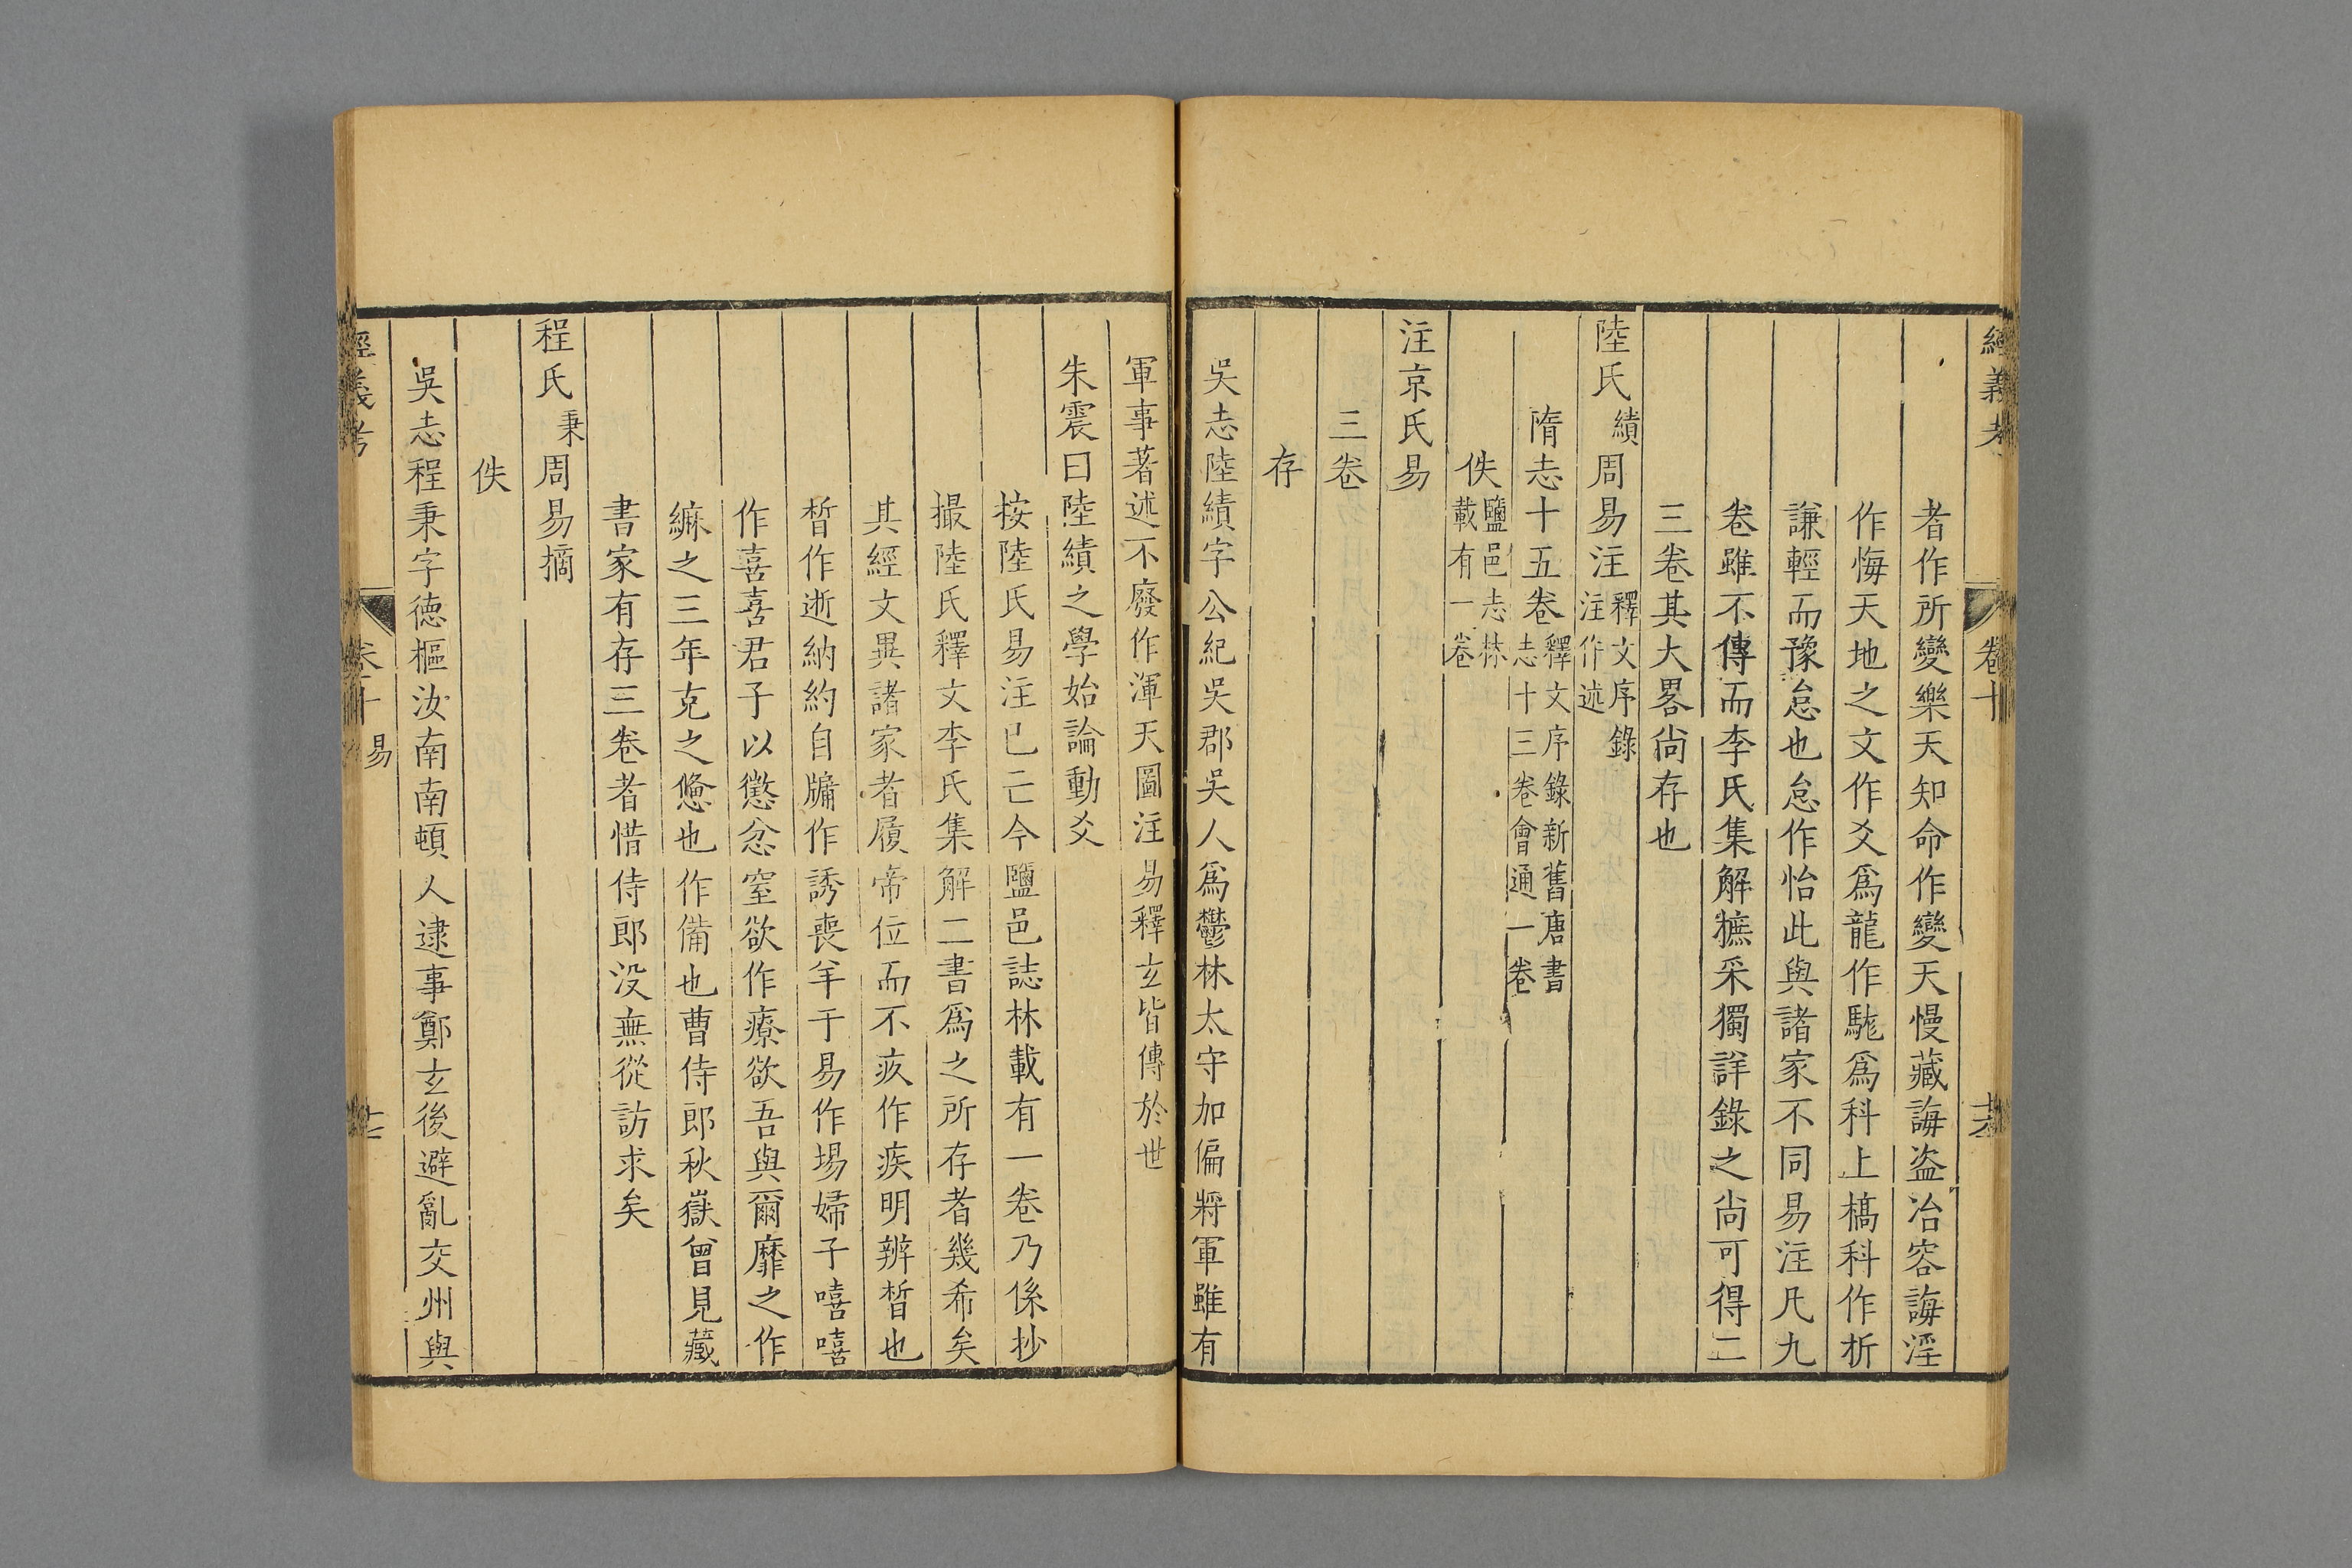 經義考
卷十
者作所變樂天知命作變天慢藏誨盗冶容誨淫
作悔天地之文作爻爲龍作駹爲科上槁科作折
謙輕而豫怠也怠作怡此與諸家不同易注凡九
卷雖不傳而李氏集解摭采獨詳錄之尚可得二
三卷其大畧尚存也
陸氏績周易注釋文序錄注作述
隋志十五卷釋文序錄新舊唐書志十三卷會通一卷
佚鹽邑志林載有一卷
注京氏易
三卷
存
吳志陸績字公紀吳郡吳人爲鬱林太守加偏將軍雖有
軍事著述不廢作渾天圖注易釋玄皆傳於世
朱震曰陸績之學始論動爻
按陸氏易注已亡今鹽邑誌林載有一卷乃係抄
撮陸氏釋文李氏集解二書爲之所存者幾希矣
其經文異諸家者履帝位而不疚作疾明辨晳也
晳作逝納約自牖作誘喪羊于易作埸婦子嘻嘻
作喜喜君子以懲忿窒欲作㢞欲吾與爾靡之作
縻之三年克之憊也作備也曹侍郎秋嶽曾見藏
書家有存三卷者惜侍郎没無從訪求矣
程氏秉周易摘
佚
吳志程秉字德樞汝南南頓人逮事鄭玄後避亂交州與
經義考
卷十 易